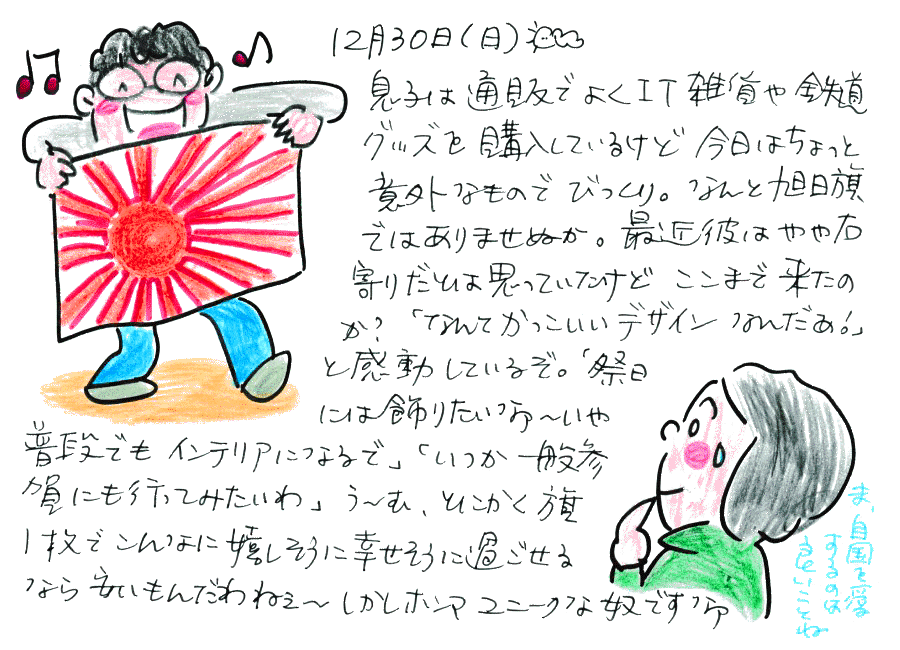 12月30日(日)
息子は通販でよくIT雑貨や鉄道
グッズを購入しているけど今日はちょっと
意外なものでびっくり。なんと旭日旗
ではありませぬか。最近彼はやや右
寄りだとは思っていたけどここまで来たの
か?「なんてかっこいいデザインなんだぁ!」
と感動しているぞ。「祭日
には飾りたいな〜いや
普段でもインテリアになるで」「いつか一般参
賀にも行ってみたいわ」う〜む、とにかく旗
1枚でこんなに嬉しそうに幸せそうに過ごせる
なら安いもんだわねぇ〜しかしホンマユニークな奴ですな
ま、自国を愛
するのは
良いことね